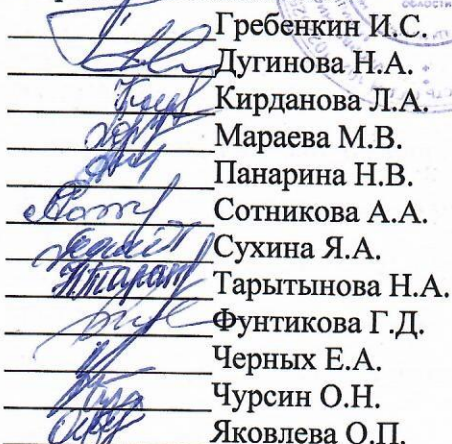 Гребенкин И.С.
Дугинова Н.А.
Кирданова Л.А.
Мараева М.В.
Панарина Н.В.
Сотникова А.А.
Сухина Я.А.
Тарытынова Н.А.
Фунтикова Г.Д.
Черных Е.А.
Чурсин О.Н.
Яковлева О.П.